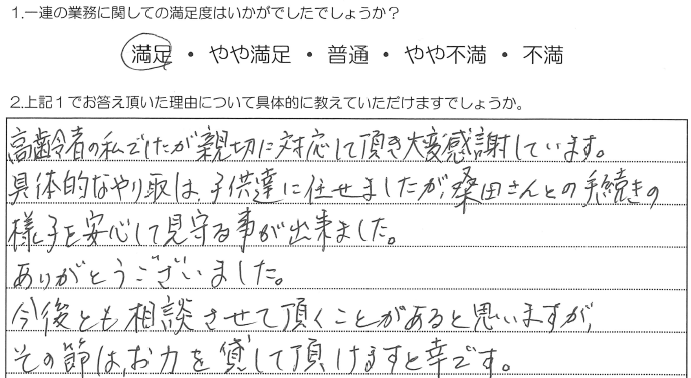 1.一連の業務に関しての満足度はいかがでしたでしょうか？
満足 ・ やや満足 ・ 普通 ・ やや不満 ・ 不満
2.上記1でお答え頂いた理由について具体的に教えていただけますでしょうか。
高齢者の私でしたが親切に対応して頂き大変感謝しています。
具体的なやり取は、子供達に任せましたが、桑田さんとの手続きの
様子を安心して見守る事が出来ました。
ありがとうございました。
今後とも相談させて頂くことがあると思いますが、
その節は、お力を貸して頂けますと幸です。